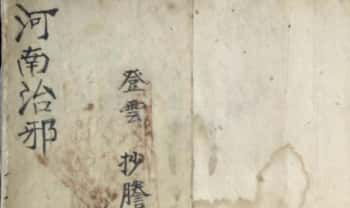 河南治邪
登雲抄謄